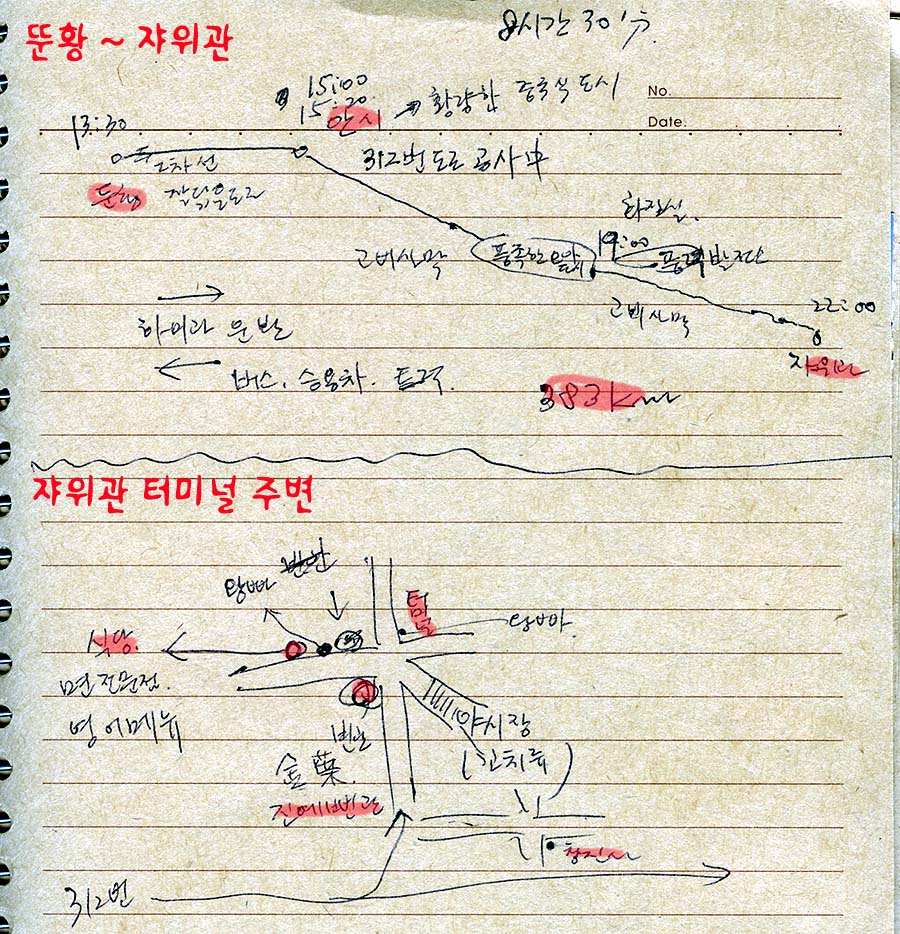 8시간 30分.
뚠황 ~ 쟈위관
15:00
15:20
안시 → 황량한 중국식 도시
No.
Date.
13:30
2차선
312번 도로 공사中
뚠황
잘닦은도로
화장실.
19:00
고비사막
풍족한 오아
풍력발전단
고비사막
22:00
하미과 운반
쟈위관
버스. 승용차. 트럭.
383km
쟈위관 터미널 주변
왕빠
터미널
왕빠.
식당.
면전문점.
영어메뉴
빈관
야시장
(꼬치류)
金葉.
진예빈관
312번